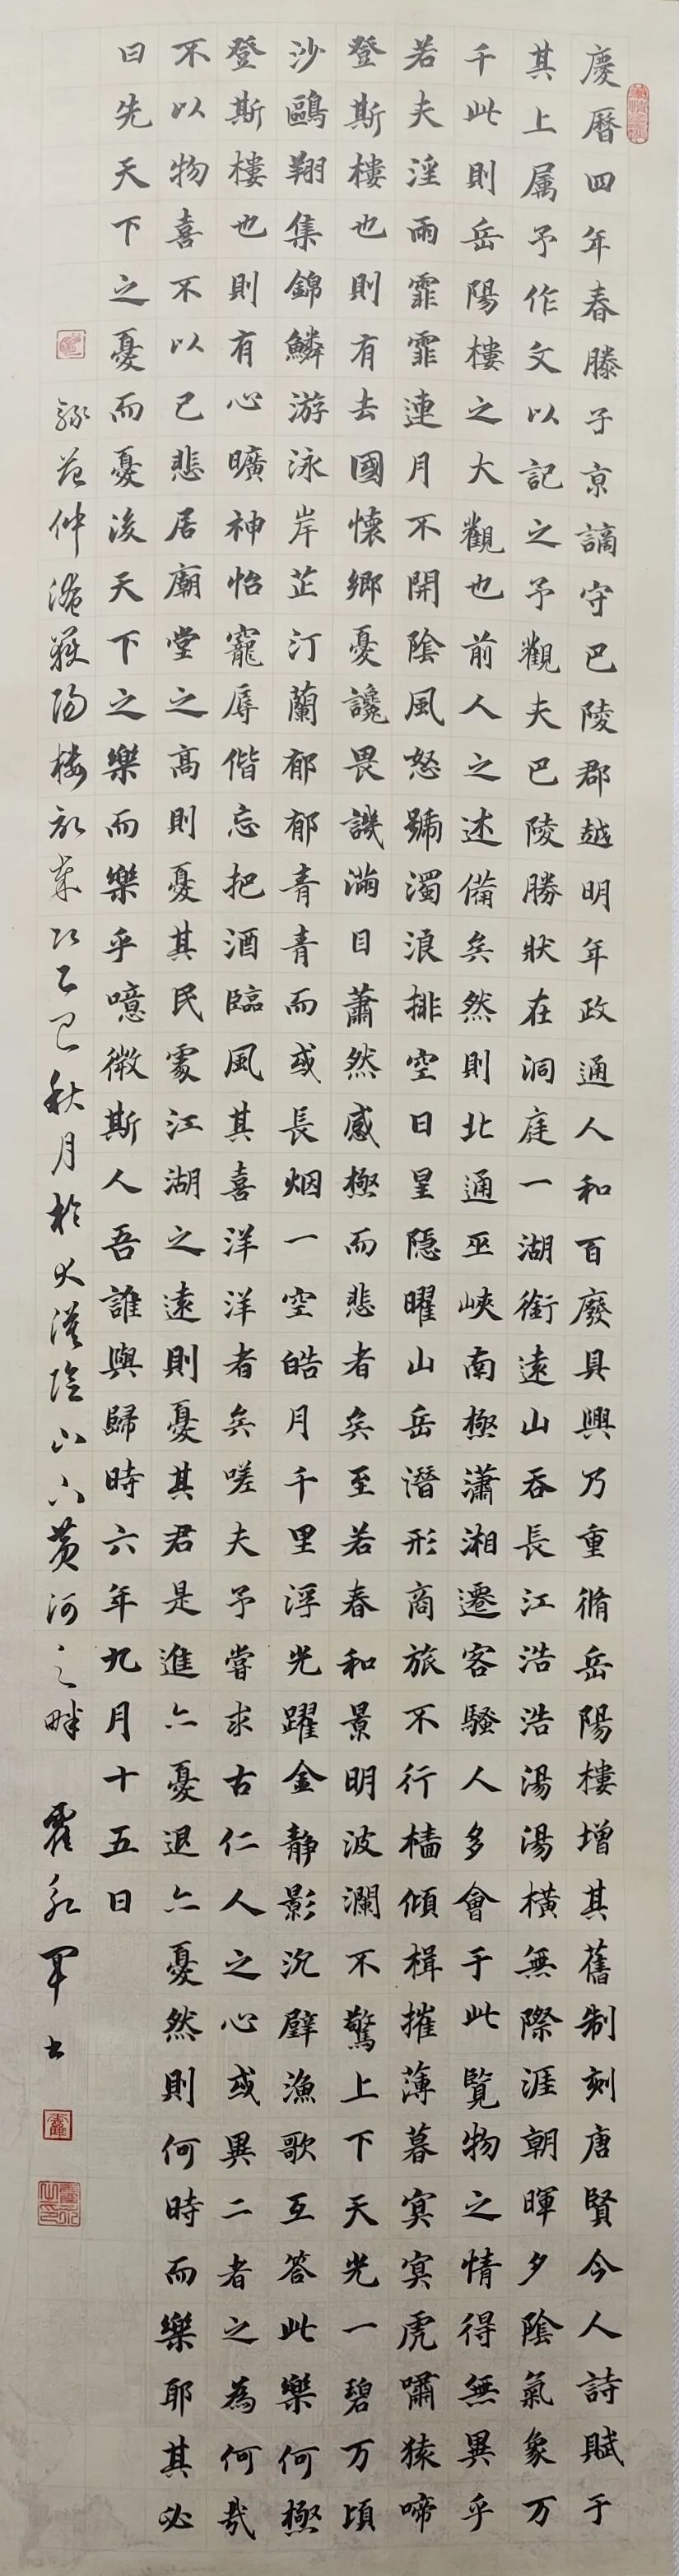 慶曆四年春滕子京謫守巴陵郡越明年政通人和百廢具興乃重脩岳陽樓增其舊制刻唐賢今人詩賦于
其上屬予作文以記之予觀夫巴陵勝狀在洞庭一湖銜遠山吞長江浩浩湯湯橫無際涯朝暉夕陰氣象万
千此則岳陽樓之大觀也前人之述備矣然則北通巫峽南極瀟湘遷客騷人多會于此覽物之情得無異乎
若夫淫雨霏霏連月不開陰風怒號濁浪排空日星隱曜山岳潛形商旅不行檣傾楫摧薄暮冥冥虎嘯猿啼
登斯樓也則有去國懷鄉憂讒畏譏滿目蕭然感極而悲者矣至若春和景明波瀾不驚上下天光一碧万頃
沙鷗翔集錦鱗游泳岸芷汀蘭郁郁青青而或長烟一空皓月千里浮光躍金静影沉璧漁歌互答此樂何極
登斯樓也則有心曠神怡寵辱偕忘把酒臨風其喜洋洋者矣嗟夫予嘗求古仁人之心或異二者之為何哉
不以物喜不以己悲居廟堂之高則憂其民處江湖之遠則憂其君是進亦憂退亦憂然則何時而樂耶其必
曰先天下之憂而憂後天下之樂而樂乎噫微斯人吾誰與歸時六年九月十五日
錄范仲淹嶽陽樓記歲次乙巳秋月於大漠陰山下黃河之畔 霍永軍書